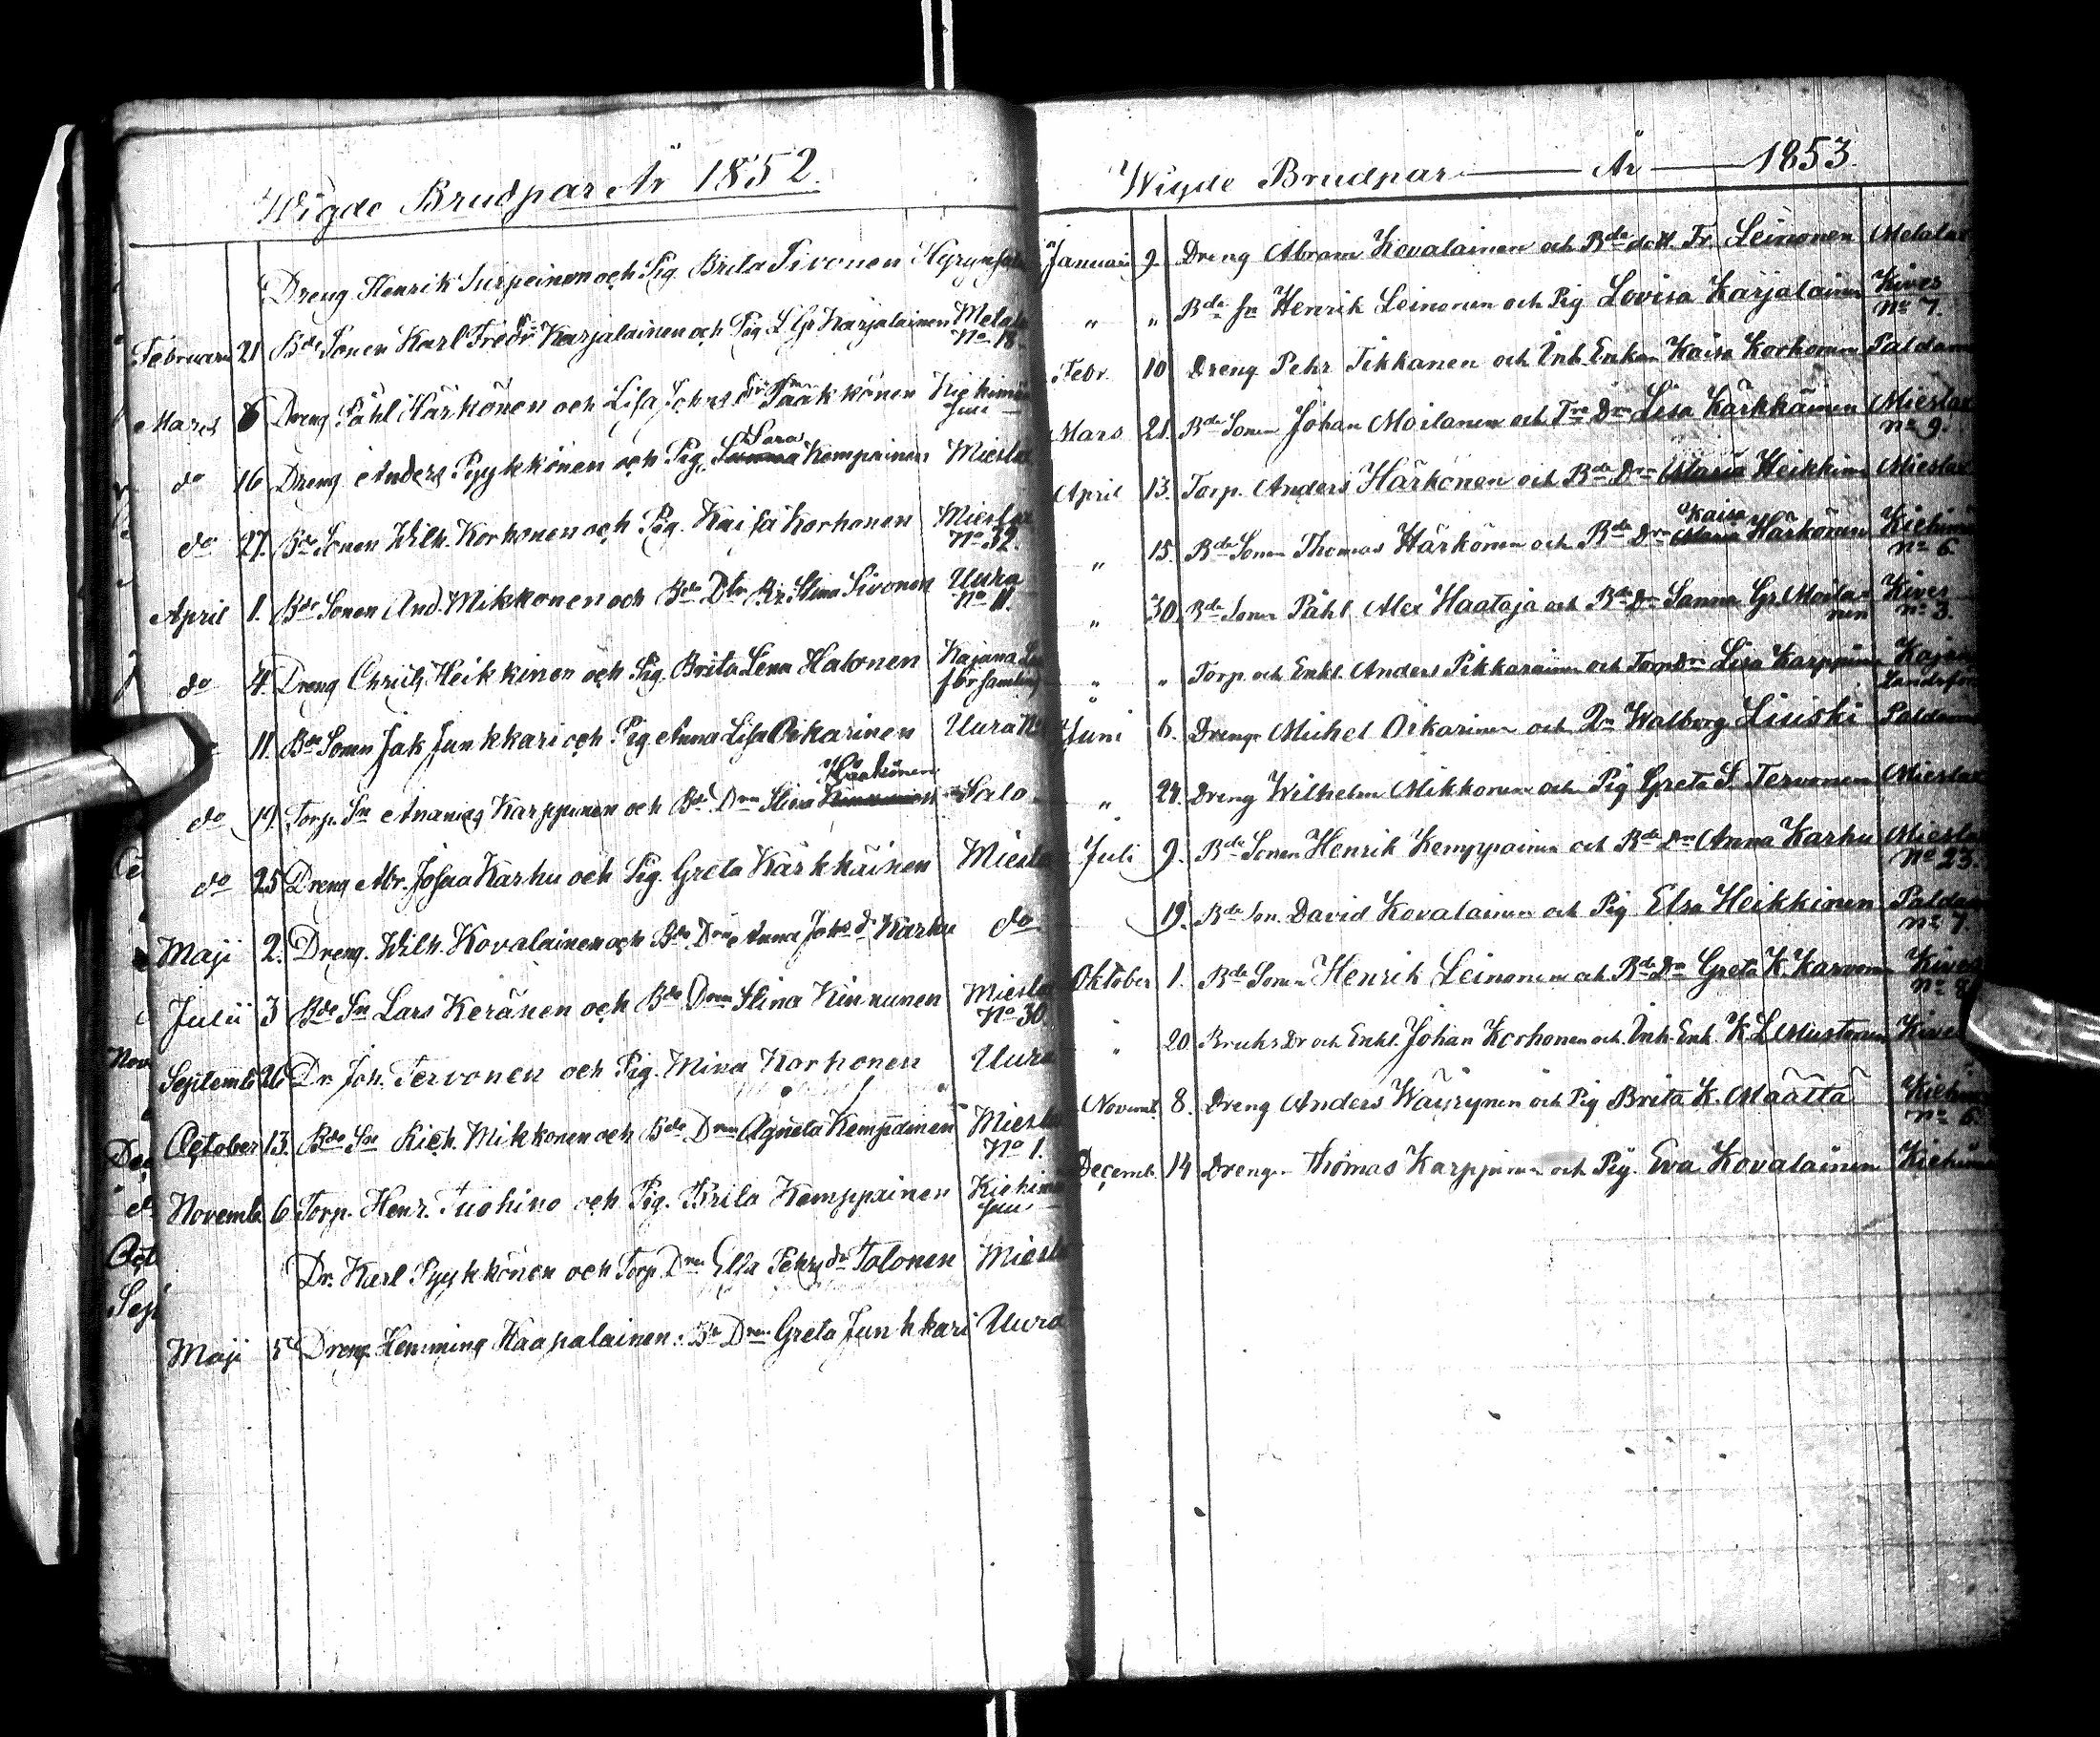 Wigde Brudpar År 1852.
Dreng Henrik Surpeinen och Pig. Brita Sivonen Hyrynsal
Februari 21 Bde Sonen Karl Fredr Karjalainen och Pig L Gr Karjalainen Metela
No 18.
Mars 6 Dreng Påhl Härkönen och Lisa Johns dr Pääkkönen Kiehimä
do 16 Dreng Anders Pyykkönen och Pig. Sara Kempainen Miesla
do 27. Bde Sonen Wilh. Korhonen och Pig. Kaisa Korhonen Miesla
No 32.
April 1. Bde Sonen And. Mikkonen och Bde Dtr Br Stina Sivonen Uura
No 11.
do 4 Dreng Christ Heikkinen och Pig. Brita Lena Halonen Kajana
församling
11. Bde Sonen Jak Junkkari och Pig Anna Lisa Oikarinen Uura No
do 19. Torp. Sn Ananias Karppinen och Bde Dn Stina Salo
do 25 Dreng Abr. Josua Karhu och Pig. Greta Kärkkäinen Miesla
Maji 2. Dreng. Wilh. Kovalainen och Bde Drn Anna Johs dr Karhu do
Julii 3 Bde Sn Lars Keränen och Bde Drn Stina Kinnunen Miesla
No 30.
Septemb 26 Dr. Joh. Tervonen och Pig. Mina Korhonen Uura
October 13. Bde Sn Rich. Mikkonen och Bde Drn Agneta Kempainen Miesla
No 1.
Novemb 6 Torp. Henr. Tuohino och Pig. Brita Kemppainen Kiehimä
Dr. Karl Pyykkönen och Torp Drn Elsa Pehrs dr Tolonen Miesla
Maji 5 Dreng Hemming Haapalainen. Be Drn Greta Junkkari Uura
Wigde Brudpar År 1853.
Januari 9. Dreng Abram Kovalainen och Bde dott Fr. Leinonen Metelä
" " Bde sn Henrik Leinonen och Pig Lovisa Karjalainen Kives
No 7.
Febr. 10 Dreng Pehr Tikkanen och Inh. Enkan Kaisa Korhonen Paldam
Mars 21. Bde Sonen Johan Moilanen och Trp Drn Lisa Kärkkäinen Mieslax
No 9.
April 13. Torp. Anders Härkönen och Bde Drn Maria Heikkinen Mieslax
" 15. Bde Sonen Thomas Härkönen och Bde Drn Kaisa Härkönen Kiehimä
No 6.
" 30. Bde Sonen Påhl Alex Haataja och Bde Dn Sanna Gr. Moila=
nen Kives No 3.
" " Torp och Enkl. Anders Pikkarainen och Torp Drn Lisa Karppinen Kajana
Landsför
Juni 6. Dreng Michel Oikarinen och Dn Walborg Liuski Paldam
" 24. Dreng Wilhelm Mikkonen och Pig Greta S. Tervonen Mieslax
Juli 9. Bde Sonen Henrik Kemppainen och Bde Drn Anna Karhu Miesla
No 23.
19. Bde Son. David Kovalainen och Pig Elsa Heikkinen Paldam
No 7.
Oktober 1. Bde Sonen Henrik Leinonen och Bde Dn Greta K. Karvonen Kives
No 8
" 20. Bruks Dr och Enkl. Johan Korhonen och Inh. Enk. K L Mustonen Kives
Novemb. 8. Dreng Anders Wäyrynen och Pig Brita K. Määttä Kiehim
No 6.
Decemb. 14 Dreng Thomas Karppinen och Pig. Eva Kovalainen Kiehim